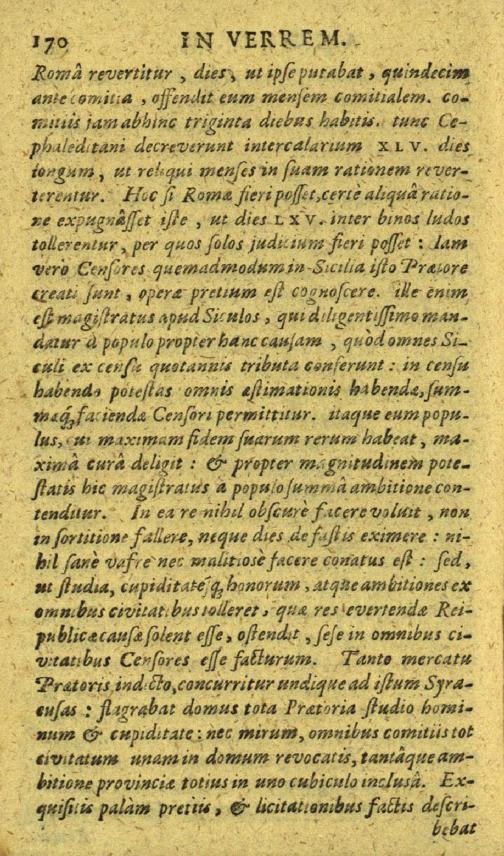 170 IN VERREM.
Româ revertitur, dies, ut ipse putabat, quindecim
ante comitia, offendit eum mensem comitialem. co-
mitiis jam abhinc triginta diebus habitis. tunc Ce-
phaleditani decreverunt intercalarium XLV. dies
longum, ut reliqui menses in suam rationem rever-
terentur. Hoc si Romæ fieri posset, certè aliquâ ratio-
ne expugnâsset iste, ut dies LXV. inter binos ludos
tollerentur, per quos solos judicium fieri posset: Iam
verò Censores quemadmodum in Sicilia isto Prætore
creati sunt, operæ pretium est cognoscere. ille enim
est magistratus apud Siculos, qui diligentissimo man-
datur à populo propter hanc causam, quòd omnes Si-
culi ex censu quotannis tributa conferunt: in censu
habendo potestas omnis æstimationis habendæ, sum-
mæq; faciendæ Censori permittitur. itaque eum popu-
lus, cui maximam fidem suarum rerum habeat, ma-
ximâ curâ deligit: & propter magnitudinem pote-
statis hic magistratus à populo summâ ambitione con-
tenditur. In ea re nihil obscurè facere voluit, non
in sortitione fallere, neque dies de fastis eximere: ni-
hil sanè vafrè nec malitiosè facere conatus est: sed,
ut studia, cupiditatesq; honorum, atque ambitiones ex
omnibus civitatibus tolleret, quæ res evertendæ Rei-
publicæ causæ solent esse, ostendit, sese in omnibus ci-
vitatibus Censores esse facturum. Tanto mercatu
Prætoris indicto, concurritur undique ad istum Syra-
cusas: flagrabat domus tota Prætoria studio homi-
num & cupiditate: nec mirum, omnibus comitiis tot
civitatum unam in domum revocatis, tantâque am-
bitione provinciæ totius in uno cubiculo inclusâ. Ex-
quisitis palàm pretiis, & licitationibus factis descri-
bebat